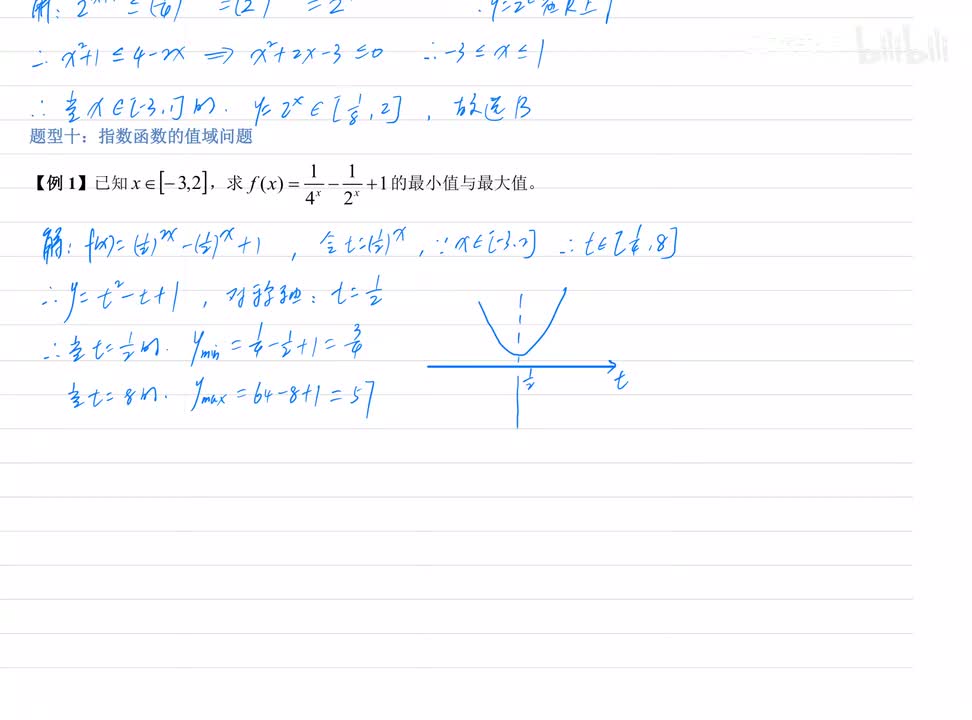 解: 2^(x²+1) ≤ (1/4)
∴ x²+1 ≤ 4-2x ⇒ x²+2x-3 ≤ 0 ∴ -3 ≤ x ≤ 1
∴ 当 x∈[-3,1]时. y=2^x∈[1/8,2], 故选B
题型十：指数函数的值域问题
【例1】已知 x∈[-3,2]，求 f(x)=1/4^x-1/2^x+1的最小值与最大值。
解: f(x)=(1/2)^2x-(1/2)^x+1, 令t=(1/2)^x, ∵x∈[-3,2] ∴t∈[1/4,8]
∴y=t²-t+1, 对称轴: t=1/2
∴当t=1/2时. y_min=1/4-1/2+1=3/4
当t=8时. y_max=64-8+1=57
1/2
t
bilibili